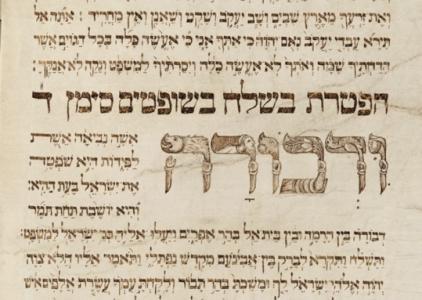 ואת זרעך מארץ שבים ושב יעקב ושקט ושאנן ואין מחריד : אתה אל
תירא עבדי יעקב נאם יהוה כי אתך אני כי אעשה כלה בכל הגוים אשר
הדחתיך שמה ואותך לא אעשה כלה ויסרתיך למשפט ונקה לא אנקך :
הפטרת בשלח בשופטים סימן ד
ודבורה
אשה נביאה אשת
לפידות היא שפטה
את ישראל בעת ההיא :
והיא יושבת תחת תמר
דבורה בין הרמה ובין בית אל בהר אפרים ויעלו אליה בני ישראל למשפט :
ותשלח ותקרא לברק בן אבינעם מקדש נפתלי ותאמר אליו הלא צוה
יהוה אלהי ישראל לך ומשכת בהר תבור ולקחת עמך עשרת אלפים איש